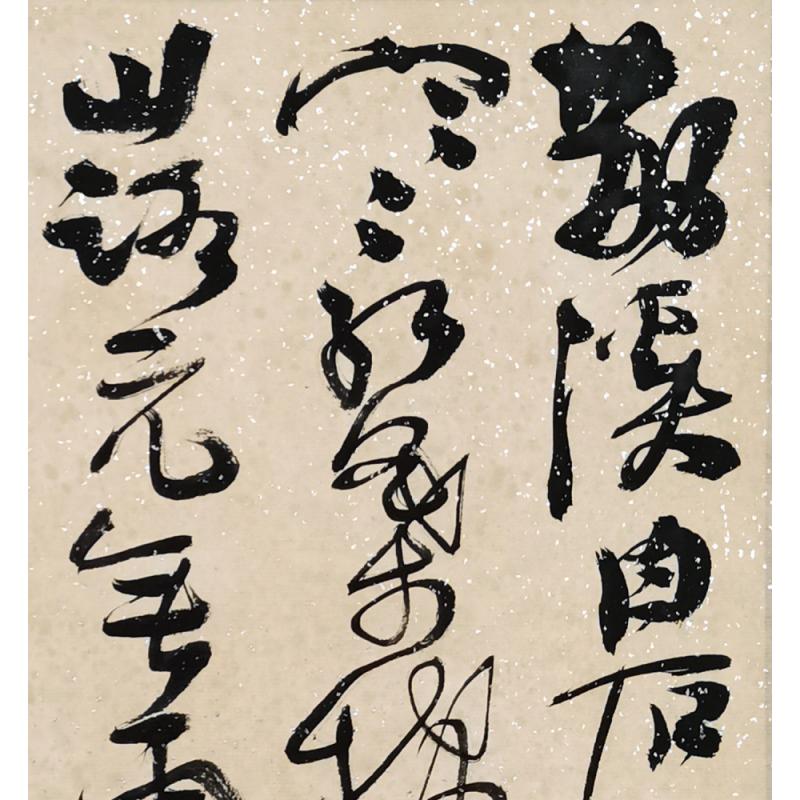 溪白石
寒紅葉稀
山路元無雨